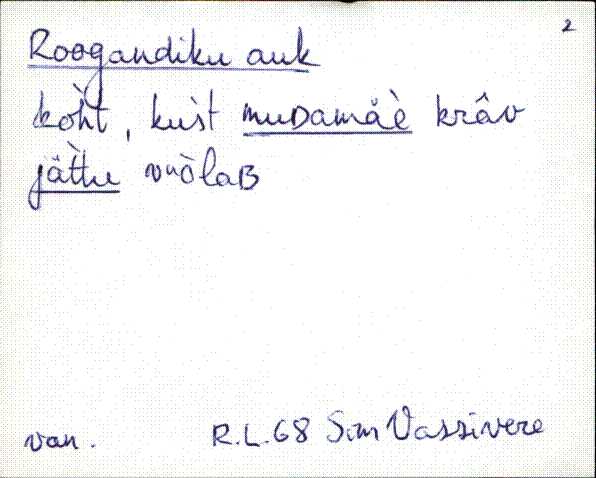 2
Roogandiku auk
kòht, kuìst muDamåè krâv
jät̀tu vuòlaB
van. R.L.68 Sim Vassivere